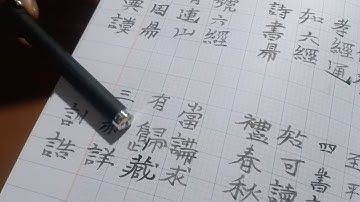 至平
孝經通 四書
如六經 始可讀
詩書易 禮春秋
號六經 當講求
有連山 有歸藏
周易 三易詳
典謨 訓誥